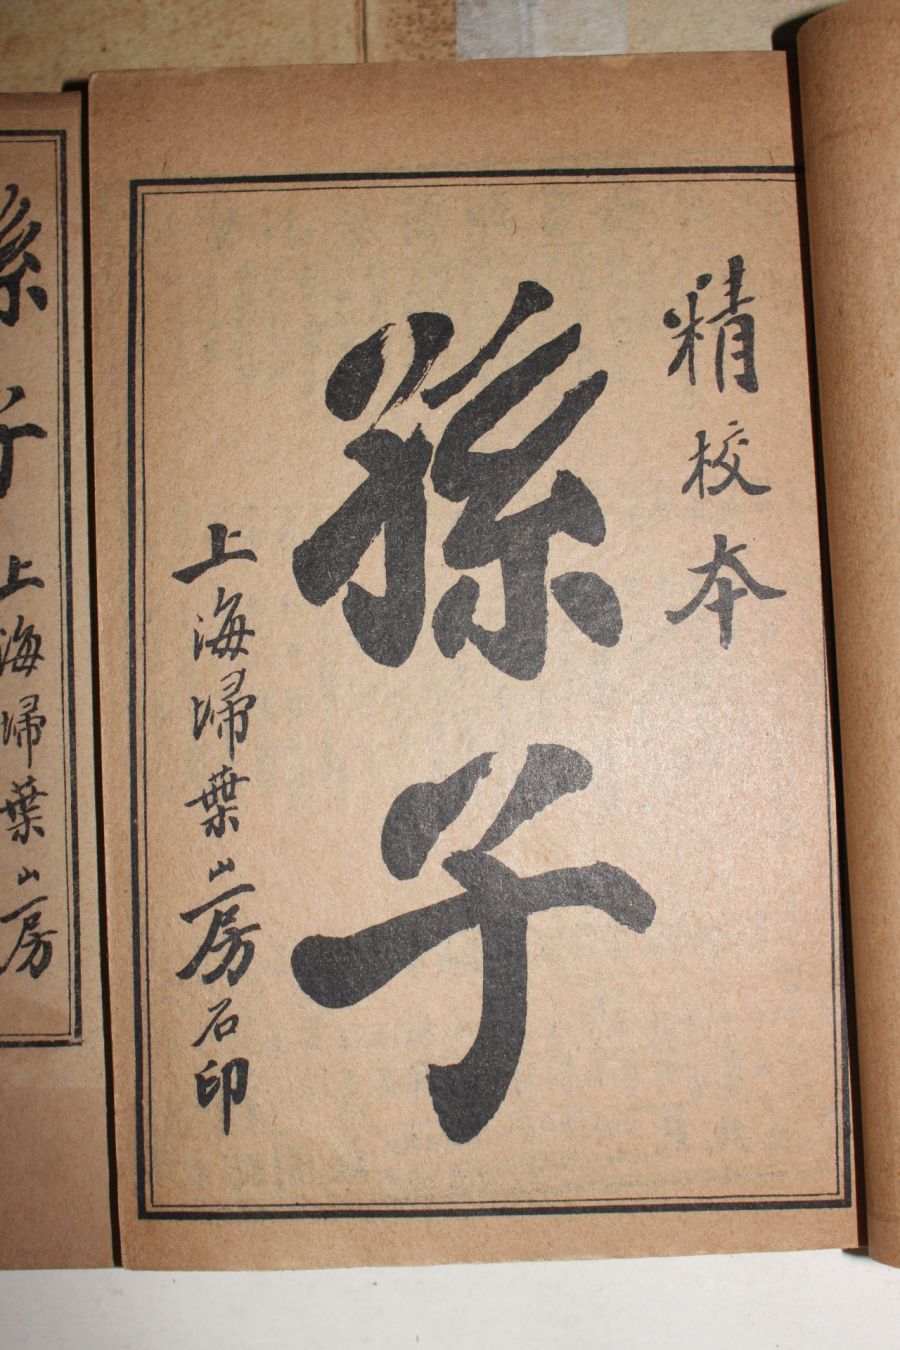 精校本
孫子
上海埽葉山房石印
孫子
上海埽葉山房